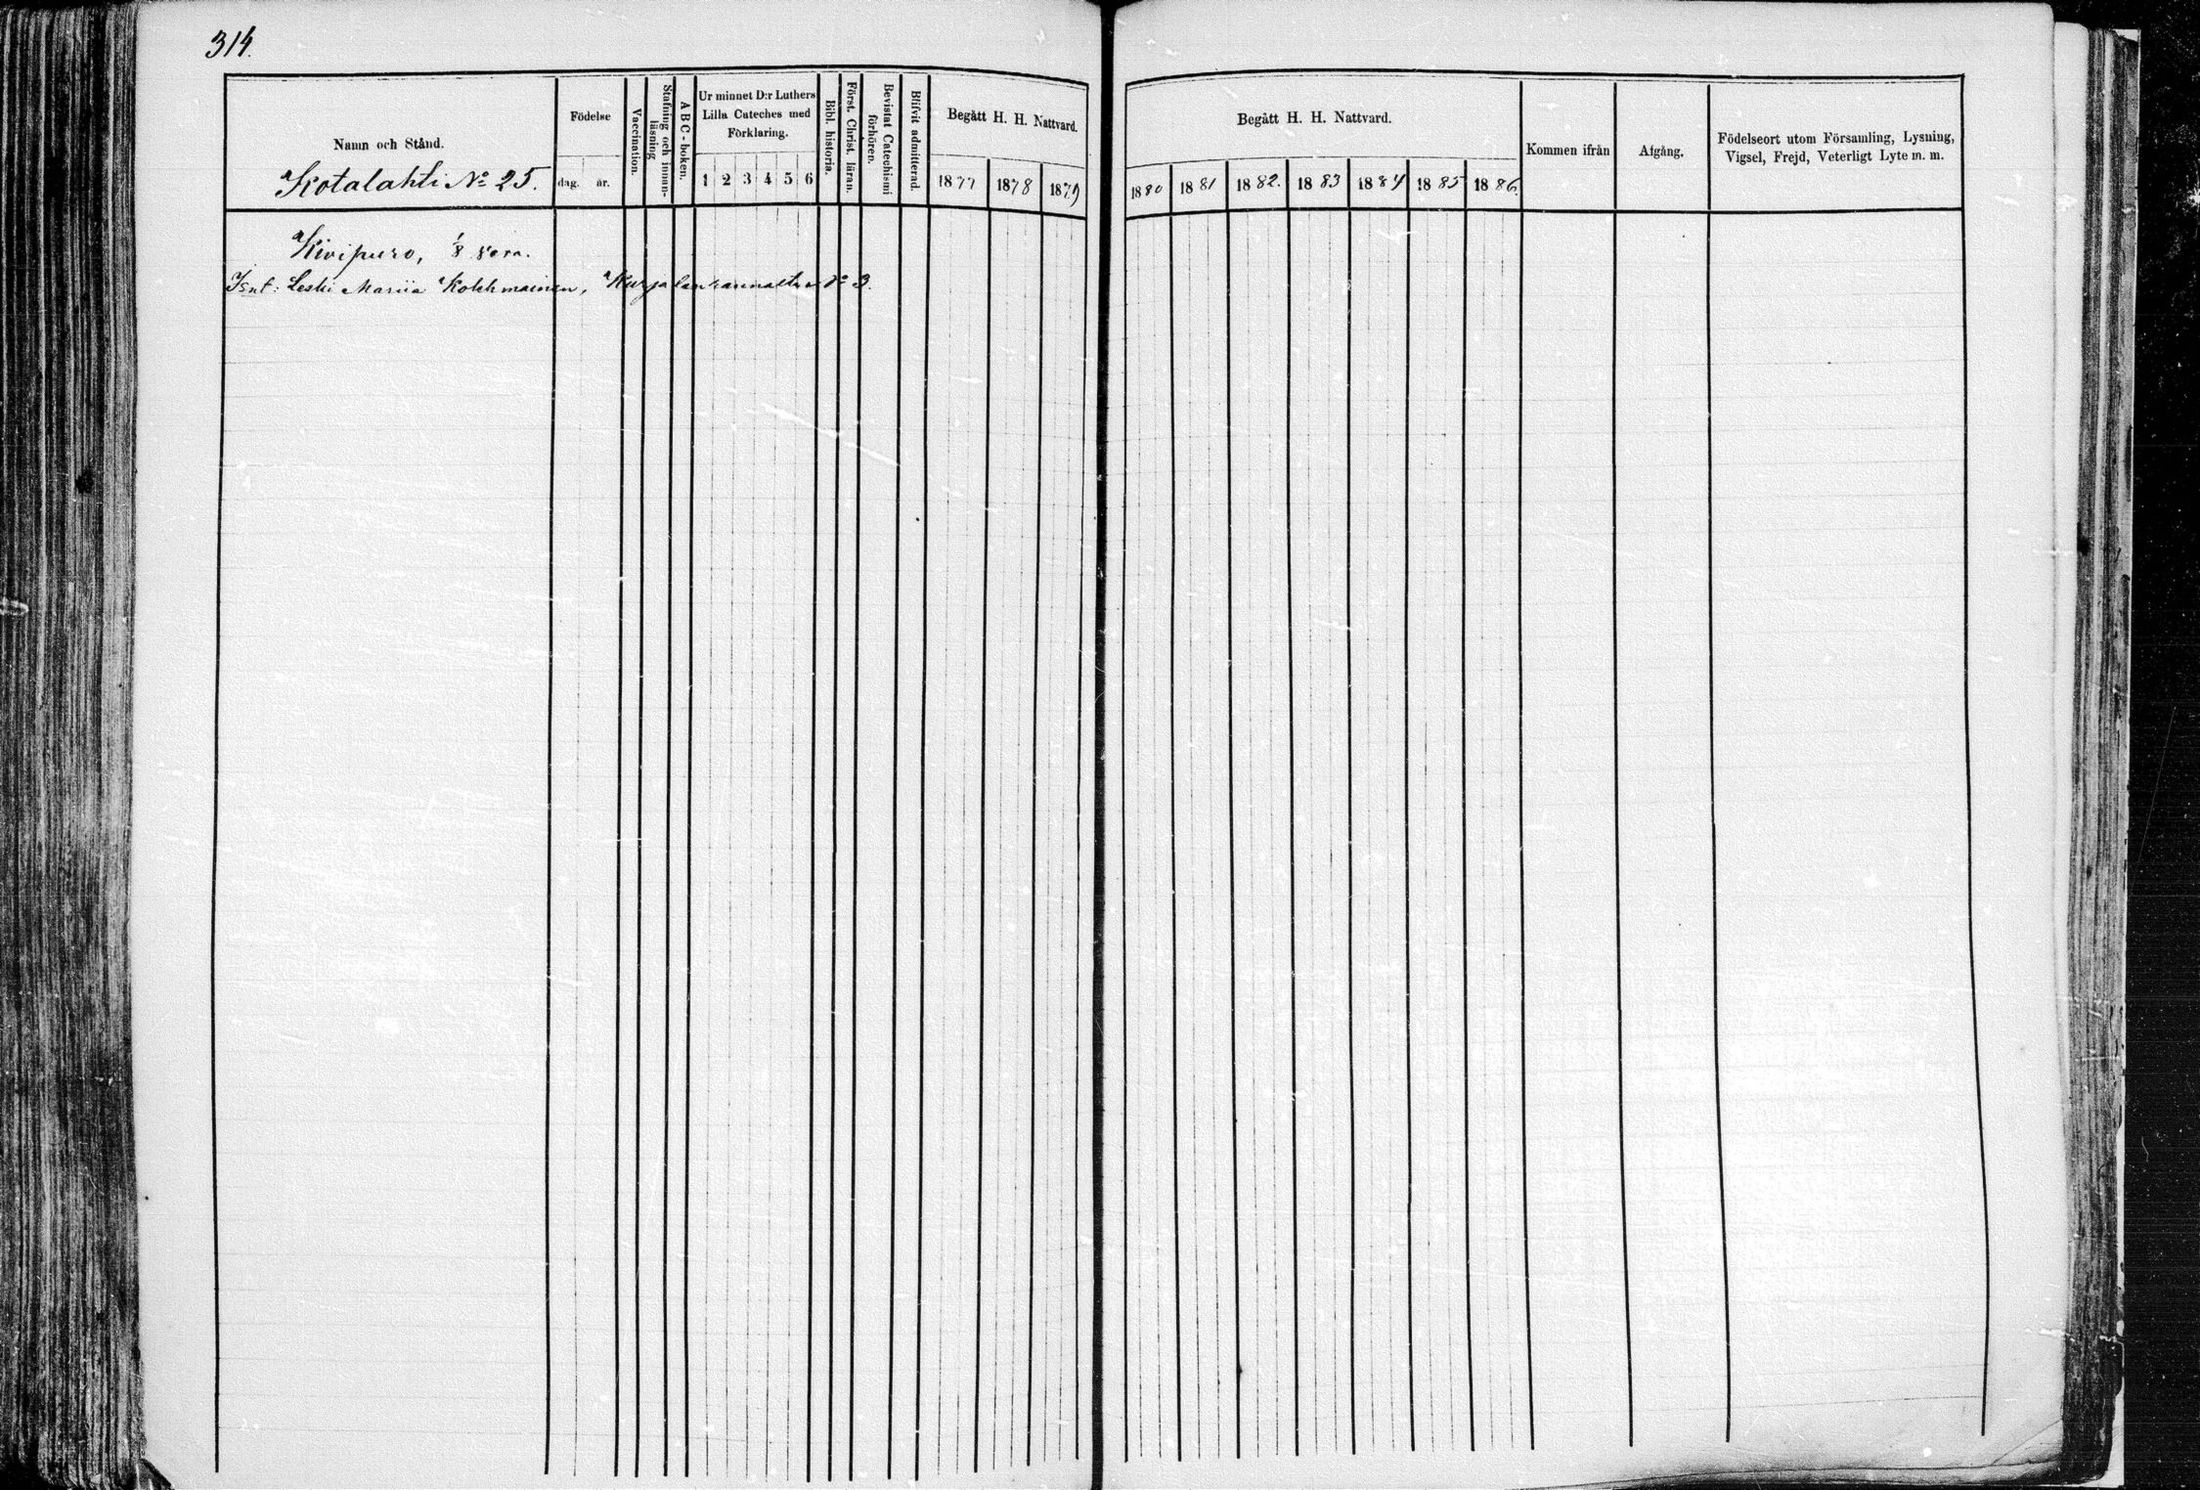 314.
Namn och Stånd.
Kotalahti № 25.
Födelse
dag. år.
Vaccination.
Stafning och innan-läsning
ABC-boken.
Ur minnet D:r Luthers
Lilla Cateches med
Förklaring.
1 2 3 4 5 6
Bibl. historia.
Först. Christ. läran.
Bevistat Catechismi förhören.
Blifvit admitterad.
Begått H. H. Nattvard.
1877 1878 1879
Begått H. H. Nattvard.
1880 1881 1882. 1883 1884 1885 1886.
Kommen ifrån
Afgång.
Födelseort utom Församling, Lysning,
Vigsel, Frejd, Veterligt Lyte m. m.
Kivipuro, 1/8
Isnt: Leski Mariia № 3.